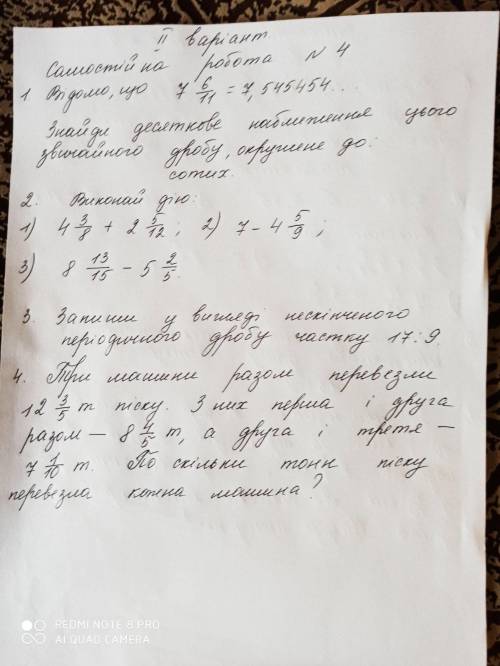 II варіант
Самостійна робота N 4
1 Відомо, що 7 6/11 = 7,545454...
Знайди десяткове наближення цього
звичайного дробу, округлене до:
сотих.
2. Виконай дію:
1) 4 3/8 + 2 5/12; 2) 7 - 4 5/9;
3) 8 13/15 - 5 2/5.
3. Запиши у вигляді нескінченого
періодичного дробу частку 17:9.
4. Три машини разом перевезли
12 3/5 т піску. З них перша і друга
разом — 8 4/5 т, а друга і третя —
7 1/10 т. По скільки тонн піску
перевезла кожна машина?
REDMI NOTE 8 PRO
AI QUAD CAMERA